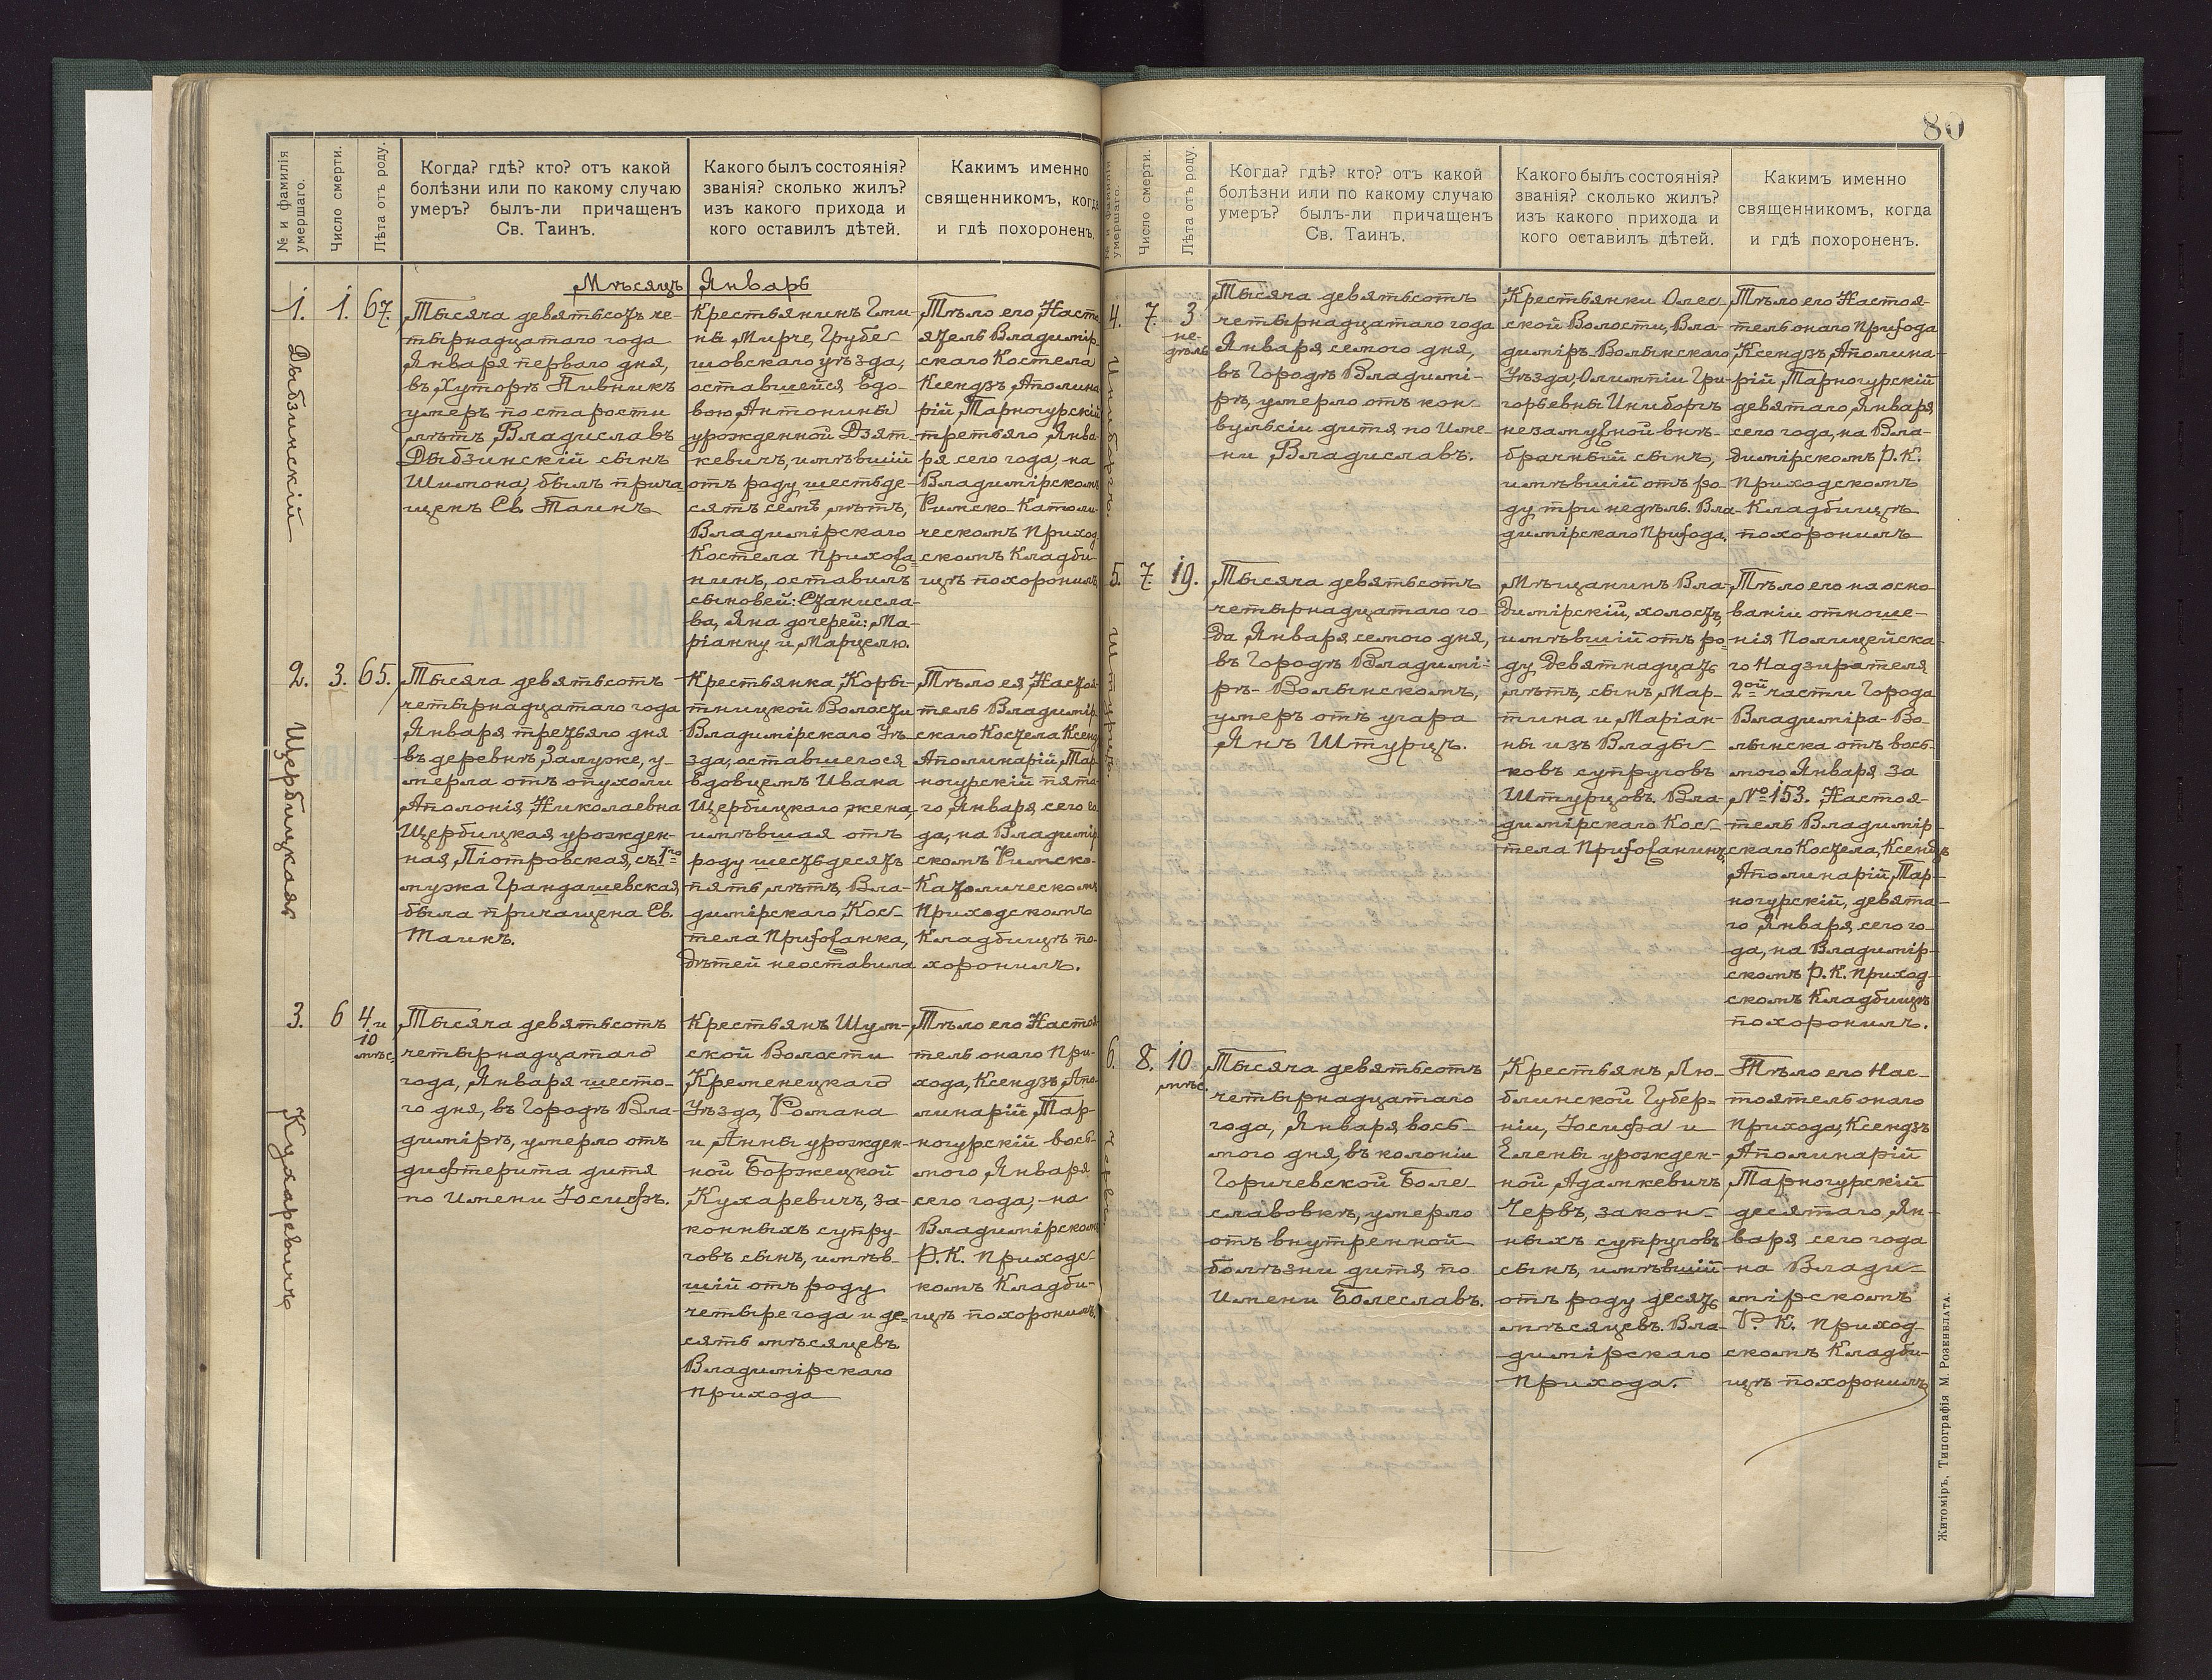 80
№ и фамилія
умершаго.
Число смерти.
Лѣта отъ роду.
Когда? гдѣ? кто? отъ какой
болѣзни или по какому случаю
умеръ? былъ-ли причащенъ
Св. Таинъ.
Какого былъ состоянія?
званія? сколько жилъ?
изъ какого прихода и
кого оставилъ дѣтей.
Каким именно
священникомъ, когда
и гдѣ похороненъ.
Мѣсяцъ Январь
1.
Дыбзинскій
1.
67.
Тысяча девятьсотъ че-
тырнадцатаго года
Января перваго дня,
въ Хуторѣ Пивникъ
умеръ по старости
лѣтъ Владиславъ
Дыбзинскій сынъ
Шимона, былъ прича-
щенъ Св. Таинъ
Крестьянинъ Гми-
ны Мирче, Грубе-
шовскаго уѣзда,
оставшейся вдо-
вою Антонины
урожденной Дзят-
кевичъ, имѣвшій
отъ роду шестьде-
сятъ семь лѣтъ,
Владимірскаго
Костела Прихожа-
нинъ, оставилъ
сыновей: Станисла-
ва, Яна дочерей: Ма-
ріанну и Марцелю.
Тѣло его Насто
ятель Владимір-
скаго Костела
Ксендзъ Аполина
рій Тарногурскій
третьяго Янва-
ря сего года, на
Владимірскомъ
Римско-Католи-
ческомъ Приход
скомъ Кладби-
щѣ похоронилъ
2.
Щербицкая
3.
65.
Тысяча девятьсотъ
четырнадцатаго года
Января третьяго дня
въ деревнѣ Залуже, у-
мерла отъ опухоли
Аполонія Николаевна
Щербицкая урожден-
ная Піотровская, съ 1го
мужа Грандашевская,
была причащена Св.
Таинъ.
Крестьянка Коры-
тницкой Волости
Владимірскаго Уѣ-
зда, оставшегося
вдовцемъ Ивана
Щербицкаго жена,
имѣвшая отъ
роду шестьдесятъ
пять лѣтъ, Вла-
димірскаго Кос-
тела Прихожанка,
дѣтей неоставила
Тѣло ея Настоя-
тель Владимір-
скаго Костела Ксенд
Аполинарій Тар-
ногурскій пята-
го Января сего го
да, на Владимір
скомъ Римско-
Католическомъ
Приходскомъ
Кладбищѣ по-
хоронилъ.
3.
Кухаревичъ
6
4. и
10
мѣс.
Тысяча девятьсотъ
четырнадцатаго
года, Января шесто-
го дня, въ Городѣ Вла-
димірѣ, умерло отъ
дифтерита дитя
по имени Іосифъ.
Крестьянъ Шум-
ской Волости
Кременецкаго
Уѣзда, Романа
и Анны урожден-
ной Боржецкой
Кухаревичъ, за-
конныхъ супру-
говъ сынъ, имѣв-
шій отъ роду
четыре года и де-
сять мѣсяцевъ
Владимірскаго
Прихода
Тѣло его Настоя
тель онаго При-
хода, Ксендзъ Апо-
линарій Тар-
ногурскій вось-
мого Января
сего года, на
Владимірскомъ
Р.К. Приходс-
комъ Кладби-
щѣ похоронилъ.
№ и фамилія
умершаго.
Число смерти.
Лѣта отъ роду.
Когда? гдѣ? кто? отъ какой
болѣзни или по какому случаю
умеръ? былъ-ли причащенъ
Св. Таинъ.
Какого былъ состоянія?
званія? сколько жилъ?
изъ какого прихода и
кого оставилъ дѣтей.
Каким именно
священникомъ, когда
и гдѣ похороненъ.
4.
Иниборгъ.
7.
3
не-
дѣль
Тысяча девятьсотъ
четырнадцатаго года
Января седьмого дня,
въ Городѣ Владимі-
рѣ, умерло отъ кон-
вульсіи дитя по име-
ни Владиславъ.
Крестьянки Олес-
ской Волости, Вла-
димір-Волынскаго
Уѣзда, Олимпіи Гри-
горьевны Иниборгъ
незамужной внѣ-
брачный сынъ,
имѣвшій отъ ро-
ду три недѣль. Вла-
димірскаго Прихода.
Тѣло его Настоя-
тель онаго Прихода
Ксендзъ Аполина-
рій Тарногурскій
девятаго Января
сего года, на Вла-
димірскомъ Р.К.
Приходскомъ
Кладбищѣ
похоронилъ
5.
Штурцъ.
7.
19.
Тысяча девятьсотъ
четырнадцатаго го-
да Января семого дня,
въ Городѣ Владимі-
рѣ-Волынскомъ,
умеръ отъ угара
Янъ Штурцъ.
Мѣщанинъ Вла-
димірскій, холостъ,
имѣвшій отъ ро-
ду девятнадцать
лѣтъ, сынъ Мар-
тина и Маріан-
ны изъ Влады-
ковъ супруговъ
Штурцовъ. Вла-
димірскаго Кос-
тела Прихожанинъ
Тѣло его на осно-
ваніи отноше-
нія Полицейска-
го Надзирателя
2ой части Города
Владиміра-Во-
лынска отъ вось-
мого Января за
№ 153. Настоя-
тель Владимір-
скаго Костела, Ксендзъ
Аполинарій Тар-
ногурскій, девята-
го Января сего го-
да, на Владимір-
скомъ Р.К. Приход-
скомъ Кладбищѣ
похоронилъ.
6.
8.
10
мѣс.
Тысяча девятьсотъ
четырнадцатаго
года, Января вось-
мого дня, въ колоніи
Горичевской Боле-
славовкѣ, умерло
отъ внутренной
болѣзни дитя по
имени Болеславъ.
Крестьянъ, Лю-
блинской Губер-
ніи, Іосифа и
Елены урожден-
ной Адамкевичъ
Червъ, закон-
ныхъ супруговъ
сынъ, имѣвшій
отъ роду десять
мѣсяцевъ. Вла-
димірскаго
Прихода.
Тѣло его Нас-
тоятель онаго
Прихода, Ксендзъ
Аполинарій
Тарногурскій
десятаго Ян-
варя сего года
на Влади-
мірскомъ
Р. К. Приход-
скомъ Кладби-
щѣ похоронилъ
Житоміръ, Типографія М. Розенблата.